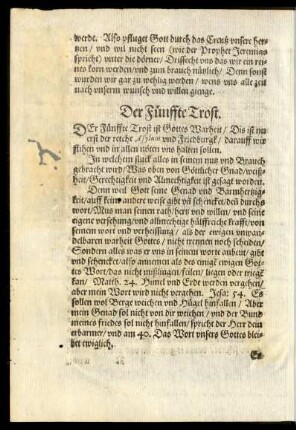 werde. Also pfluget Gott durch das Creutz unsere her-
tzen/ und wil nicht seen (wie der Prophet Jeremias
spricht) unter die dörner/ Drifft uns das wir ein rei-
nes korn werden/ und zum brauch nützlich/ Denn sonst
wurden wir gar zu wehlig werden/ wens uns alle zeit
nach unserm wunsch und willen gienge.
Der Fünffte Trost.
DEr Fünffte Trost ist Gottes Warheit/ Dis ist nu
erst der rechte Asylum und Friedburgk/ darauff wir
flihen und in allen nöten uns halten sollen.
In welchem stuck alles in seinem nutz und Brauch
gebracht wird/ Was oben von Göttlicher Gnad/ weiß-
heit/ Gerechtigkeit und Almechtigkeit ist gesagt worden.
Denn weil Gott seine Genad und Barmhertzig-
keit/ auff kein andere weise gibt uñ schencket/ den durchs
wort/ Mus man seinen rath/ hertz und willen/ und seine
eigene versehung/ und allmechtige hülff reiche krafft/ von
seinem wort und verheissung/ als der ewigen unwan-
delbaren warheit Gottes/ nicht trennen noch scheiden/
Sondern alles was er uns in seinem worte anbeut/ gibt
und schencket/ also annemen als des einigē ewigen Got-
tes Wort/ das nicht mißlingen/ feilen/ liegen oder triegē
kan/ Matth. 24. Himel und Erdt werden vergehen/
aber mein Wort wird nicht vergehen. Jesa: 54. Es
sollen wol Berge weichen und Hügel hinfallen/ Aber
mein Genad sol nicht von dir weichen/ und der Bund
meines friedes sol nicht hinfallen/ spricht der Herr dein
erbarmer/ und am 40. Das Wort unsers Gottes blei-
bet ewiglich.